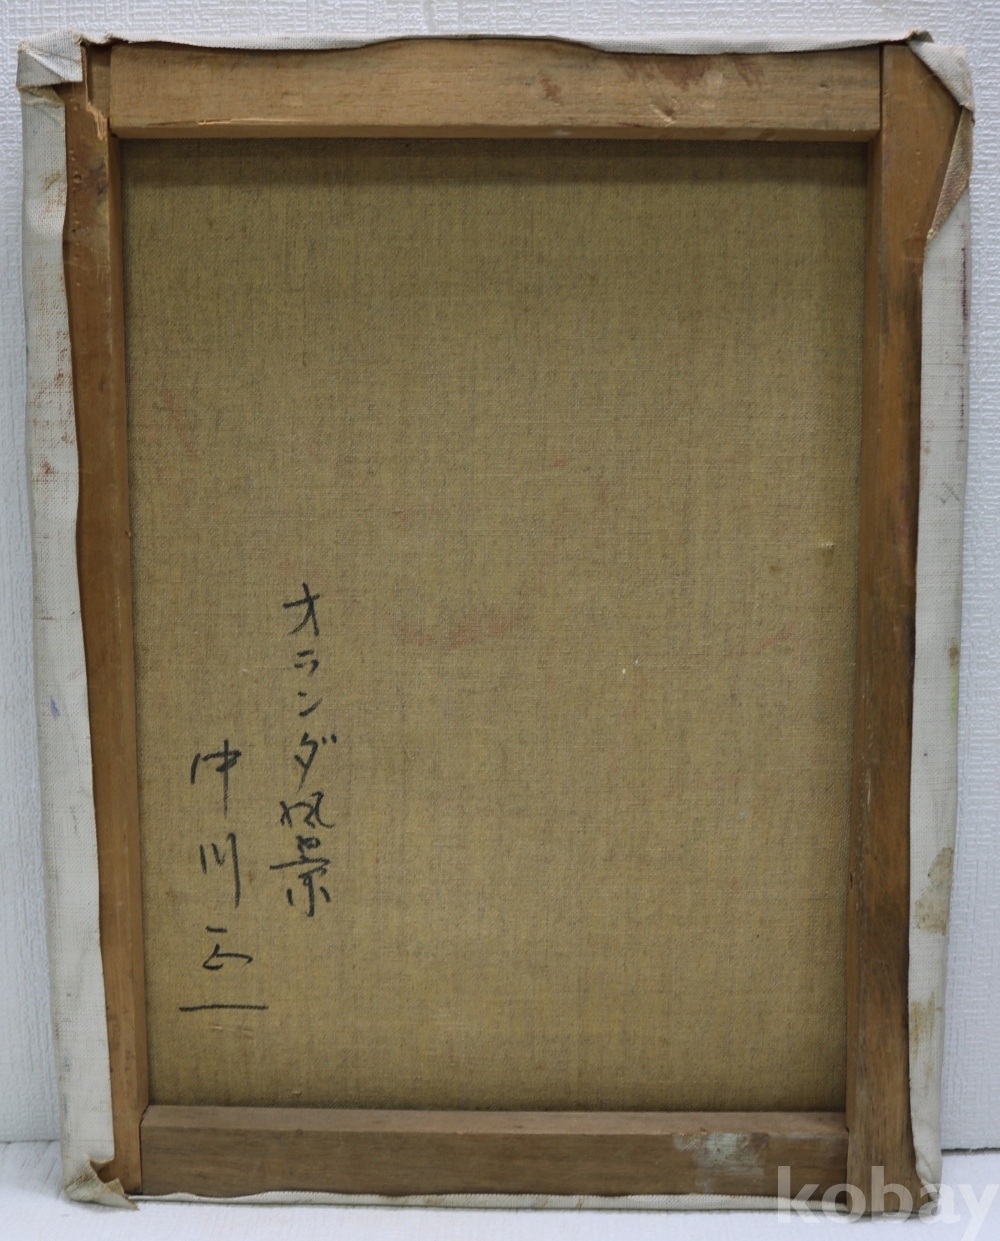 オランダ風景
中川正一
kobay